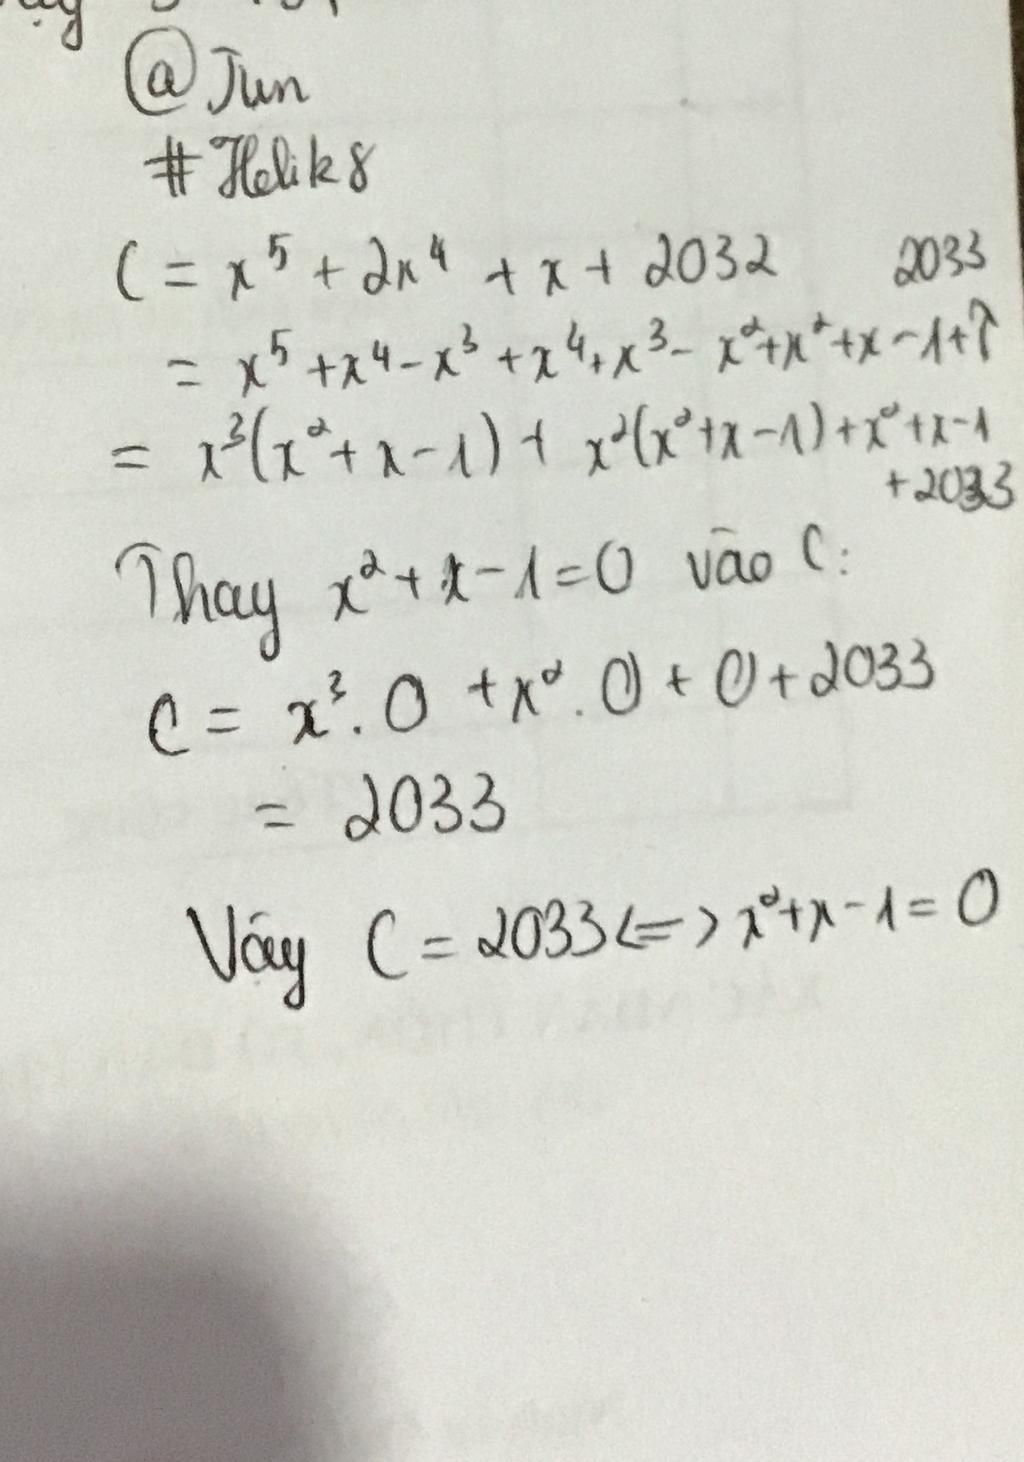 @ Jun
# Helik8
C = x⁵ + 2x⁴ + x + 2032 2033
= x⁵ + x⁴ - x³ + x⁴ + x³ - x² + x² + x - 1 + ↑
= x³(x² + x - 1) + x²(x² + x - 1) + x² + x - 1
+ 2033
Thay x² + x - 1 = 0 vào C:
C = x³ . 0 + x² . 0 + 0 + 2033
= 2033
Vậy C = 2033 <=> x² + x - 1 = 0